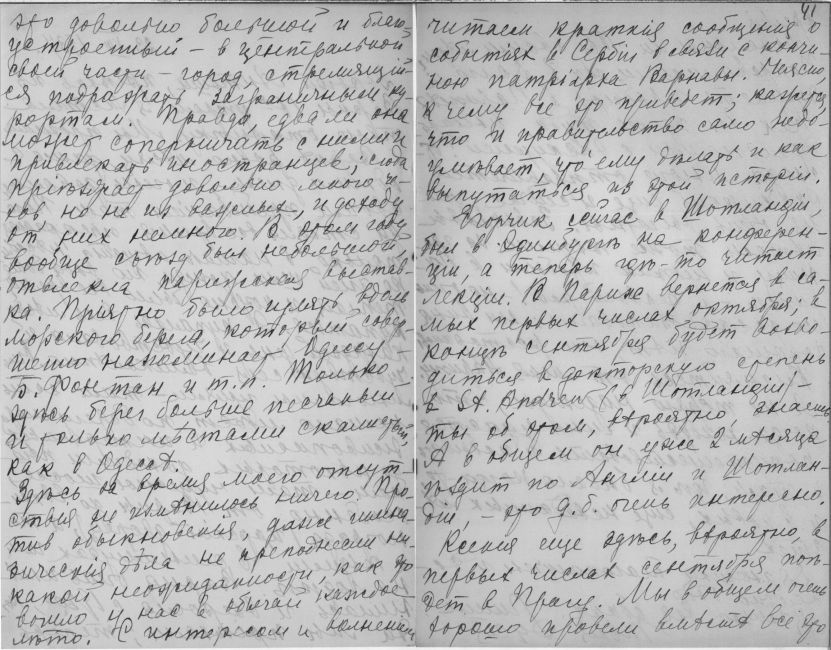 это довольно большой и благо-
устроенный – в центральной
своей части – город, стремящiй-
ся подражать заграничным ку-
рортам. Правда, едва ли она
может соперничать с ними и
привлекать иностранцев; сюда
прiѣзжает довольно много
но не из важных, и доходу
от них немного. В этом году
вообще съѣзд был небольшой,
отвлекла парижская выстав-
ка. Прiятно было гулять вдоль
морского берега, который совер-
шенно напоминает Одессу –
Б. Фонтан и т.п. Только
здѣсь берег больше песчаный
и только мѣстами скалистый,
как в Одессѣ.
Здѣсь за время моего отсут-
ствiя не измѣнилось ничего. Про-
тив обыкновенiя, даже гимна-
зическiя дѣла не преподнесли ни-
какой неожиданности, как это
вошло у нас в обычай каждое
лѣто. С интересом и волненiем
41
читаем краткiя сообщенiя о
событiях в Сербiи в связи с кончи-
ною патрiарха Варнавы. Неясно,
к чему все это приведет; кажется,
что и правительство само недо-
умѣвает, что ему дѣлать и как
выпутаться из этой исторiи.
Егорчик сейчас в Шотландiи,
был в Эдинбургѣ на конферен-
цiи, а теперь гдѣ-то читает
лекцiи. В Париж вернется в са-
мых первых числах октября; в
концѣ сентября будет возво-
диться в докторскую степень
в St. Andrew (в Шотландiи) –
ты об этом, вѣроятно, знаешь
А в общем он уже 2 мѣсяца
ѣздит по Англiи и Шотлан-
дiи, – это д.б. очень интересно.
Ксенiя еще здѣсь, вѣроятно, в
первых числах сентября поѣ-
дет в Прагу. Мы в общем очень
хорошо провели вмѣстѣ всё это